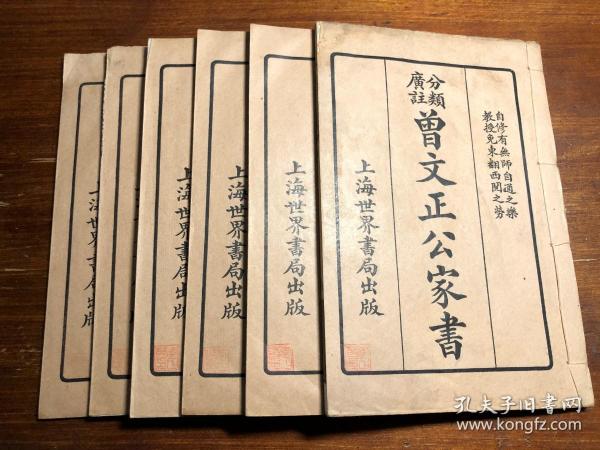 自修有無師自通之樂
教授免東翻西閱之勞
分類
廣註
曾文正公家書
上海世界書局出版
上海世界書局出版
上海世界書局出版
上海世界書局出版
上海世界書局出版
上海世界書局出版
孔夫子旧书网
www.kongfz.com